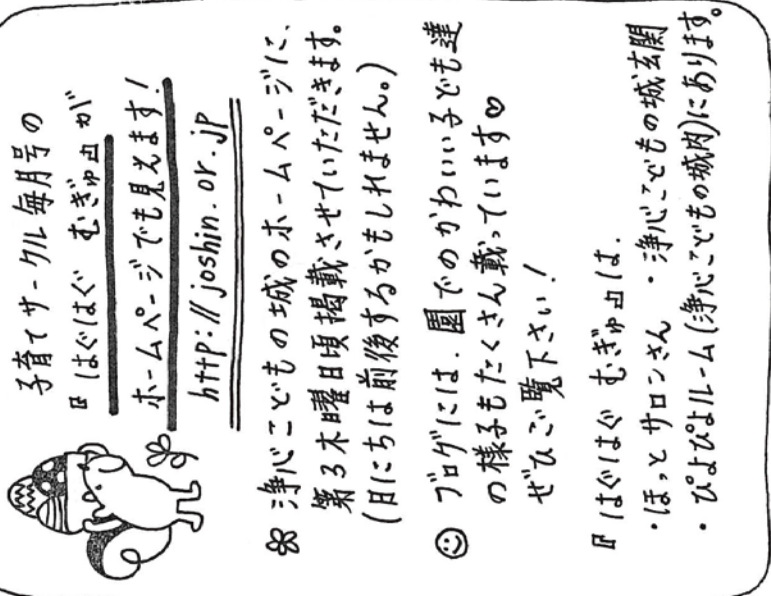 子育てサークル毎月号の
『はぐはぐ むぎゅ』が
ホームページでも見えます!
http://joshin.or.jp
浄心こどもの城のホームページに、
第3木曜日頃掲載させていただきます。
(日にちは前後するかもしれません。)
ブログには、園でのかわいい子ども達
の様子もたくさん載っています♡
ぜひご覧下さい!
『はぐはぐ むぎゅ』は、
・ほっとサロンさん ・浄心こどもの城玄関
・ぴよぴよルーム(浄心こどもの城内)にあります。